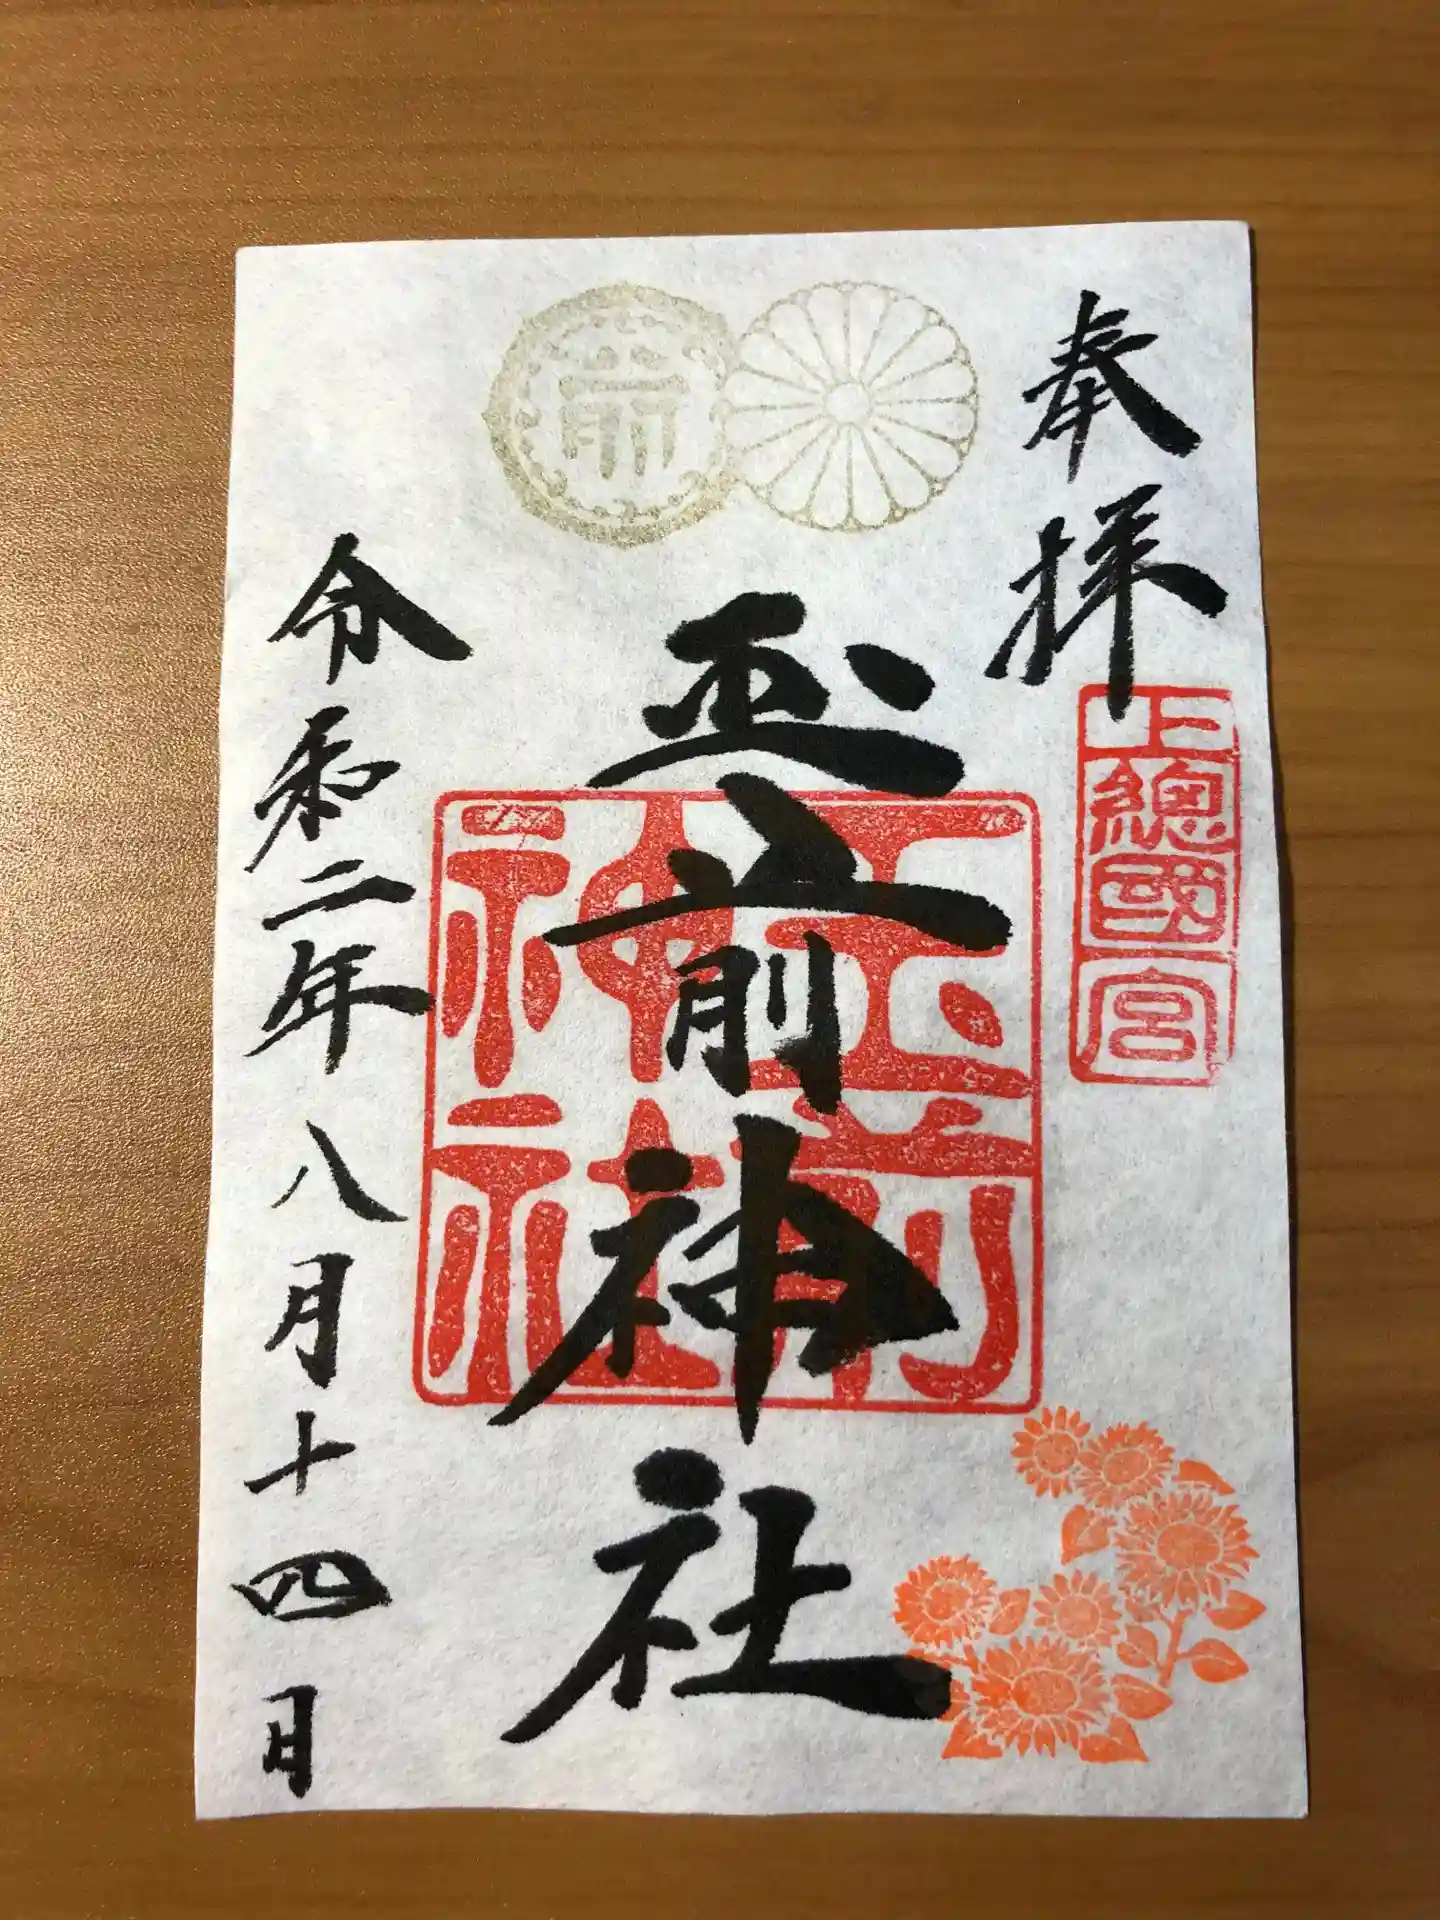 奉拝
上總國一宮
玉前神社
玉前神社
令和二年八月十四日